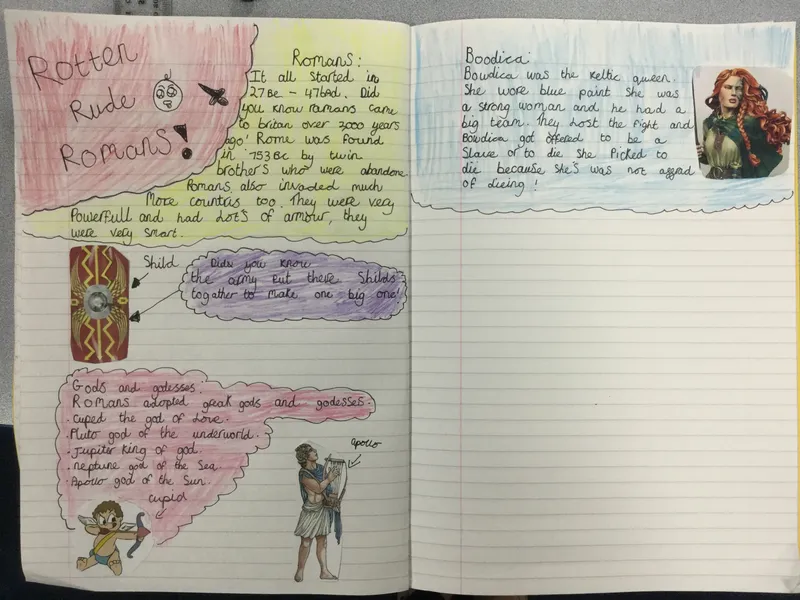 Rotten
Rude
Romans!
Romans:
It all started in
27BC - 476ad. Did
you know romans came
to britan over 2000 years
ago! Rome was found
in 753BC by twin
brother's who were abandone
Romans also invaded much
More countris too. They were very
Powerfull and had Lot's of armour, they
were very smart.
Shild
Didu you know
the army Put there Shilds
together to make one big one!
Gods and godesses:
Romans adopted greak gods and godesses.
· Cuped the god of Love.
· Pluto god of the underworld.
· Jupiter King of god.
· neptune god of the Sea.
· Apollo god of the Sun.
cupid
Apollo
Boodica:
Bowdica was the Keltic queen.
She wore blue paint she was
a strong woman and he had a
big team. They Lost the fight and
Bowdica got offered to be a
Slave or to die she Picked to
die because she's was not affrad
of dieing!